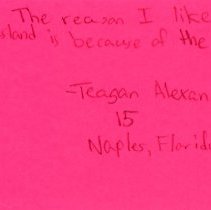 The reason I like
island is because of the
-Teagan Alexan
15
Naples, Florid